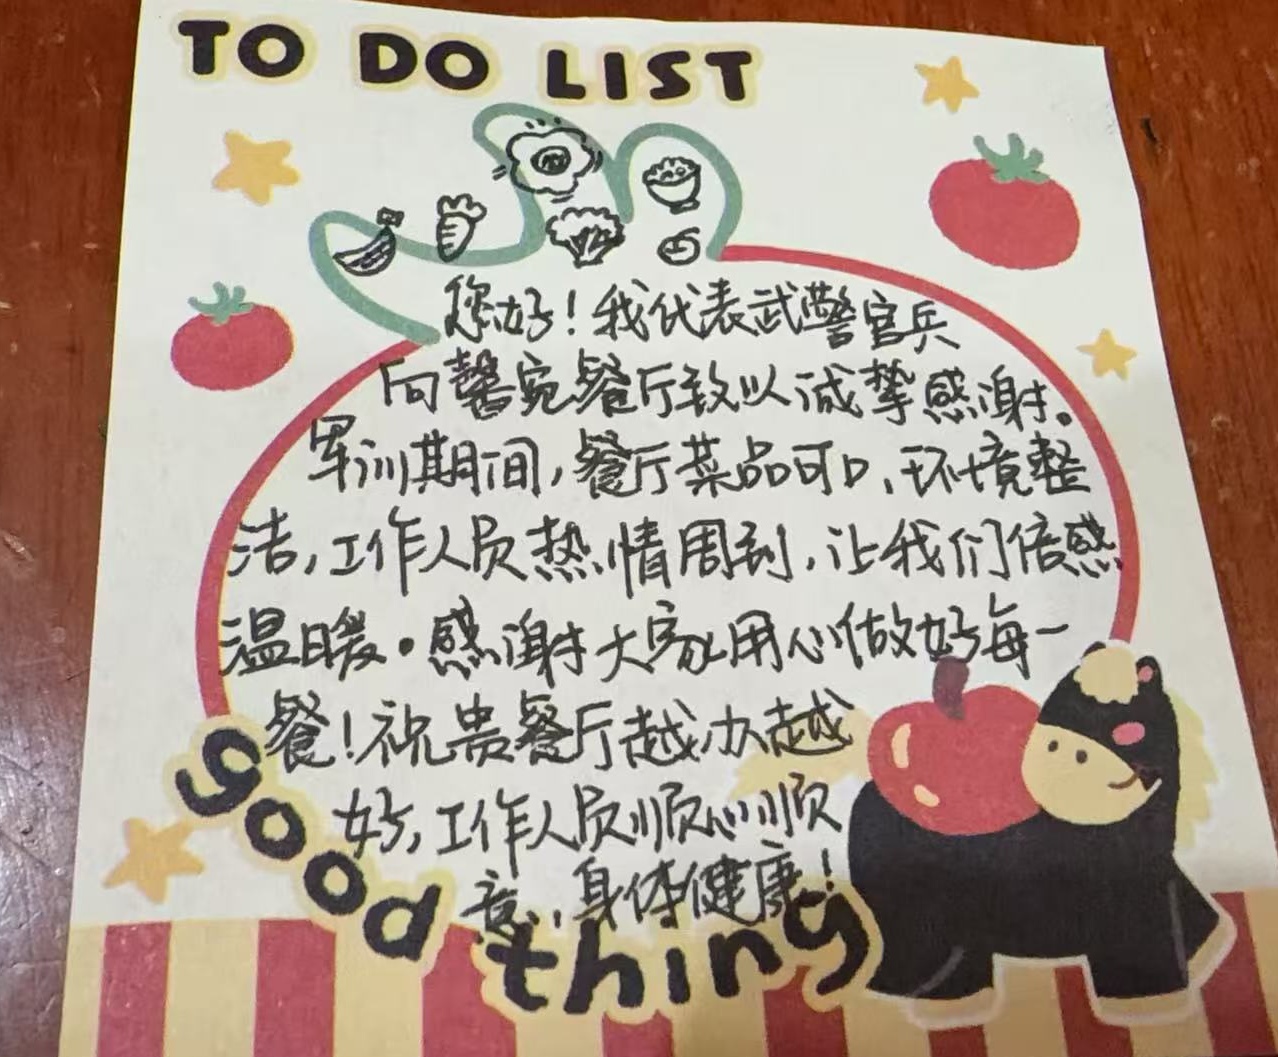 TO DO LIST
您好！我代表武警官兵
向馨宛餐厅致以诚挚感谢。
军训期间，餐厅菜品可口、环境整
洁，工作人员热情周到，让我们倍感
温暖。感谢大家用心做好每一
餐！祝贵餐厅越办越
好，工作人员顺心顺
意，身体健康！
good thing